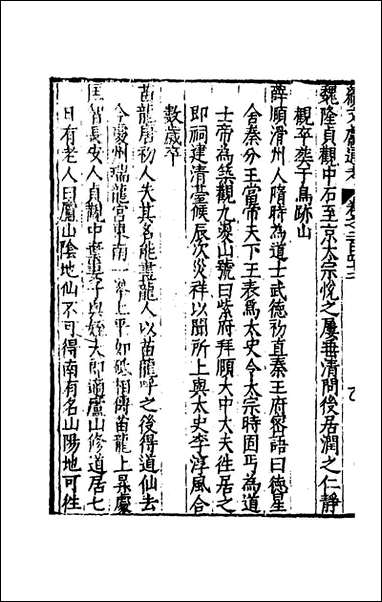 續文獻通考 卷之二百四十二
魏隆貞觀中石至京太宗悅之屢垂清問後居潤之仁靜
觀卒葬于鳥跡山
薛順滑州人隋時為道士武德初直秦王府密語曰德星
舍秦分王當帝天下王表為太史令太宗時固丐為道
士帝為築觀九嵏山號曰紫府拜順大中大夫徃居之
即祠建清臺候辰次災祥以聞所上與太史李淳風合
數歲卒
苗龍唐初人失其名能畫龍人以苗龍呼之後得道仙去
今處州瑞龍宮東南一峯上平如砥相傳苗龍上昇處
匡智長安人貞觀中棄妻子與姪大郎適廬山修道居七
日有老人曰廬山陰地仙不可得南有名山陽地可徃